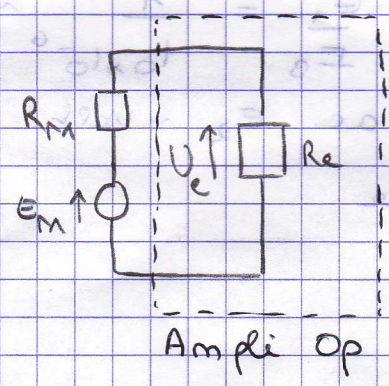 R_M
U_e
Re
E_M
Ampli Op